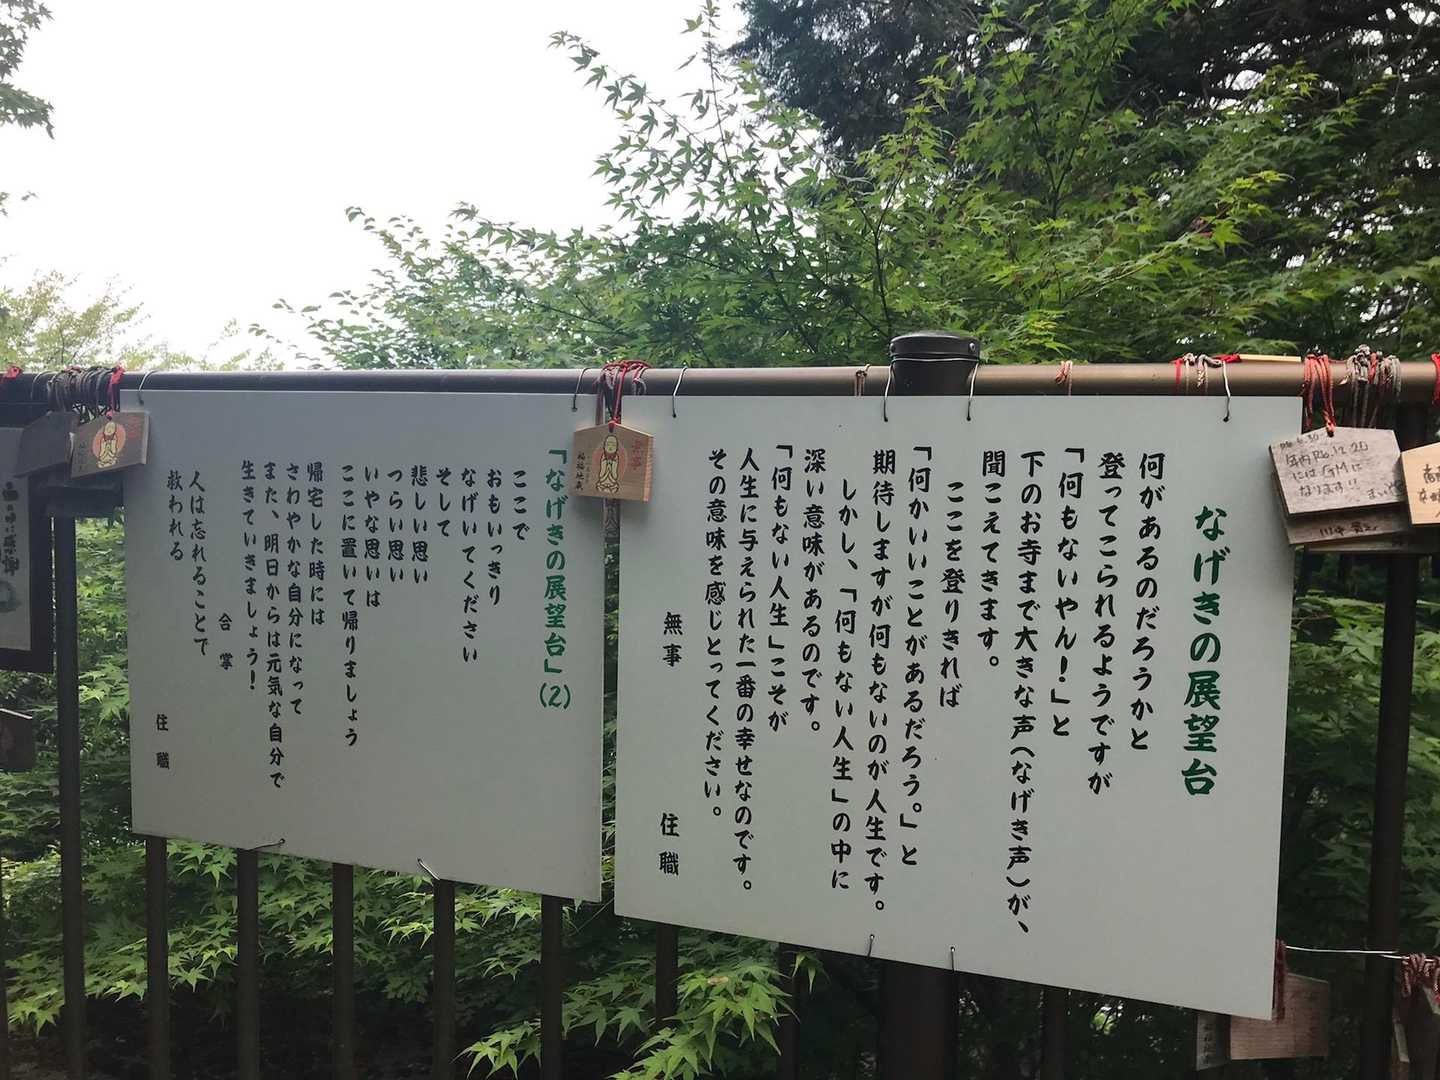 なげきの展望台
何があるのだろうかと
登ってこられるようですが
「何もないやん！」と
下のお寺まで大きな声（なげき声）が、
聞こえてきます。
ここを登りきれば
「何かいいことがあるだろう。」と
期待しますが何もないのが人生です。
しかし、「何もない人生」の中に
深い意味があるのです。
「何もない人生」こそが
人生に与えられた一番の幸せなのです。
その意味を感じとってください。
無事　住職
「なげきの展望台」(2)
ここで
おもいっきり
なげいてください
そして
悲しい思い
つらい思い
いやな思いは
ここに置いて帰りましょう
帰宅した時には
さわやかな自分になって
また、明日からは元気な自分で
生きていきましょう！
合掌
人は忘れることで
救われる
住職
年内
には GMに
なります!!